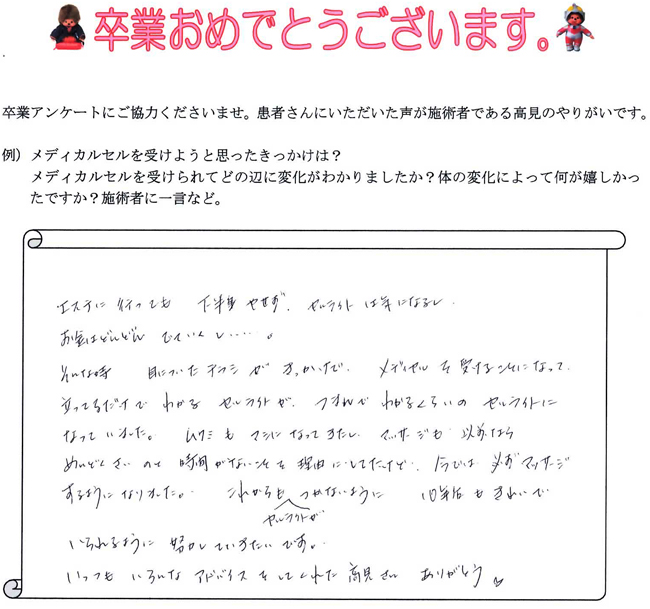 卒業おめでとうございます。
卒業アンケートにご協力くださいませ。患者さんにいただいた声が施術者である高見のやりがいです。
例）メディカルセルを受けようと思ったきっかけは？
メディカルセルを受けられてどの辺に変化がわかりましたか？体の変化によって何が嬉しかっ
たですか？施術者に一言など。
エステに行っても 下半身やせず、セルライトは気になるし、
お金はどんどん でていくし…‥。
そんな時 目についたチラシがきっかけで、メディセルを受けることになって、
立ってるだけで わかる セルライトが、つまんで わかるくらいの セルライトに
なっていました。ムクミもマシになってきたし、マッサージも 以前なら
めんどくさいのと 時間がないことを理由にしてたけど、今では 必ずマッサージ
するようになりました。これからも つかないように 10年後もきれいで
セルライトが
いられるように 努力していきたいです。
いつも いろいろな アドバイスをしてくれた 高見さん ありがとう♡